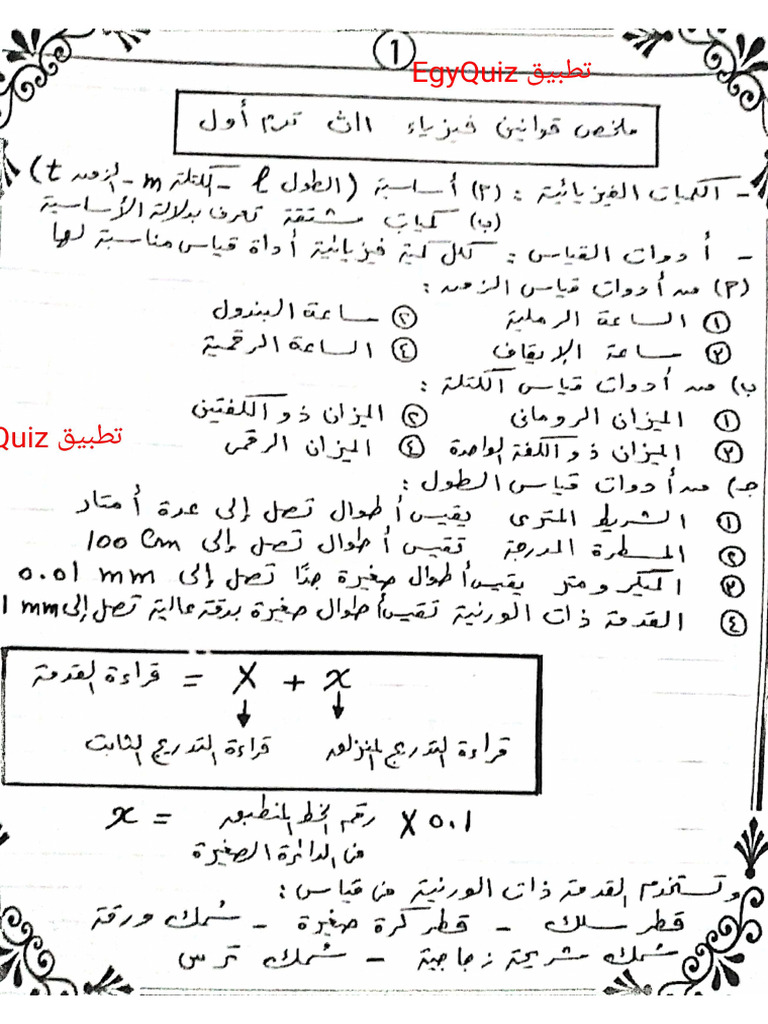 1
تطبيق EgyQuiz
ملخص قوانين فيزياء ١ث ترم أول
- الكميات الفيزيائية : (٢) أساسية (الطول l - الكتلة m - الزمن t)
(ب) كميات مشتقة تعرف بدلالة الأساسية
- أدوات القياس : كل كمية فيزيائية أداة قياس مناسبة لها
(٢) من أدوات قياس الزمن :
① الساعة الرملية ② ساعة البندول
③ ساعة الإيقاف ④ الساعة الرقمية
ب) من أدوات قياس الكتلة :
① الميزان الرومانى ② الميزان ذو الكفتين
تطبيق Quiz
③ الميزان ذو الكفة الواحدة ④ الميزان الرقمى
جـ) من أدوات قياس الطول :
① الشريط المترى يقيس أطوال تصل إلى عدة أمتار
② المسطرة المدرجة تقيس أطوال تصل إلى 100 Cm
③ الميكرومتر يقيس أطوال صغيرة جدًا تصل إلى 0.01 mm
④ القدمة ذات الورنية تقيس أطوال صغيرة بدقة عالية تصل إلى 1 mm
قراءة القدمة = X + x
قراءة التدريج الثابت قراءة التدريج المنزلق
x = رقم الخط المنطبق X 0.1
من الدائرة الصغيرة
وتستخدم القدمة ذات الورنية فى قياس :
قطر سلك - قطر كرة صغيرة - سُمك ورقة
سُمك شريحة زجاجية - سُمك ترس